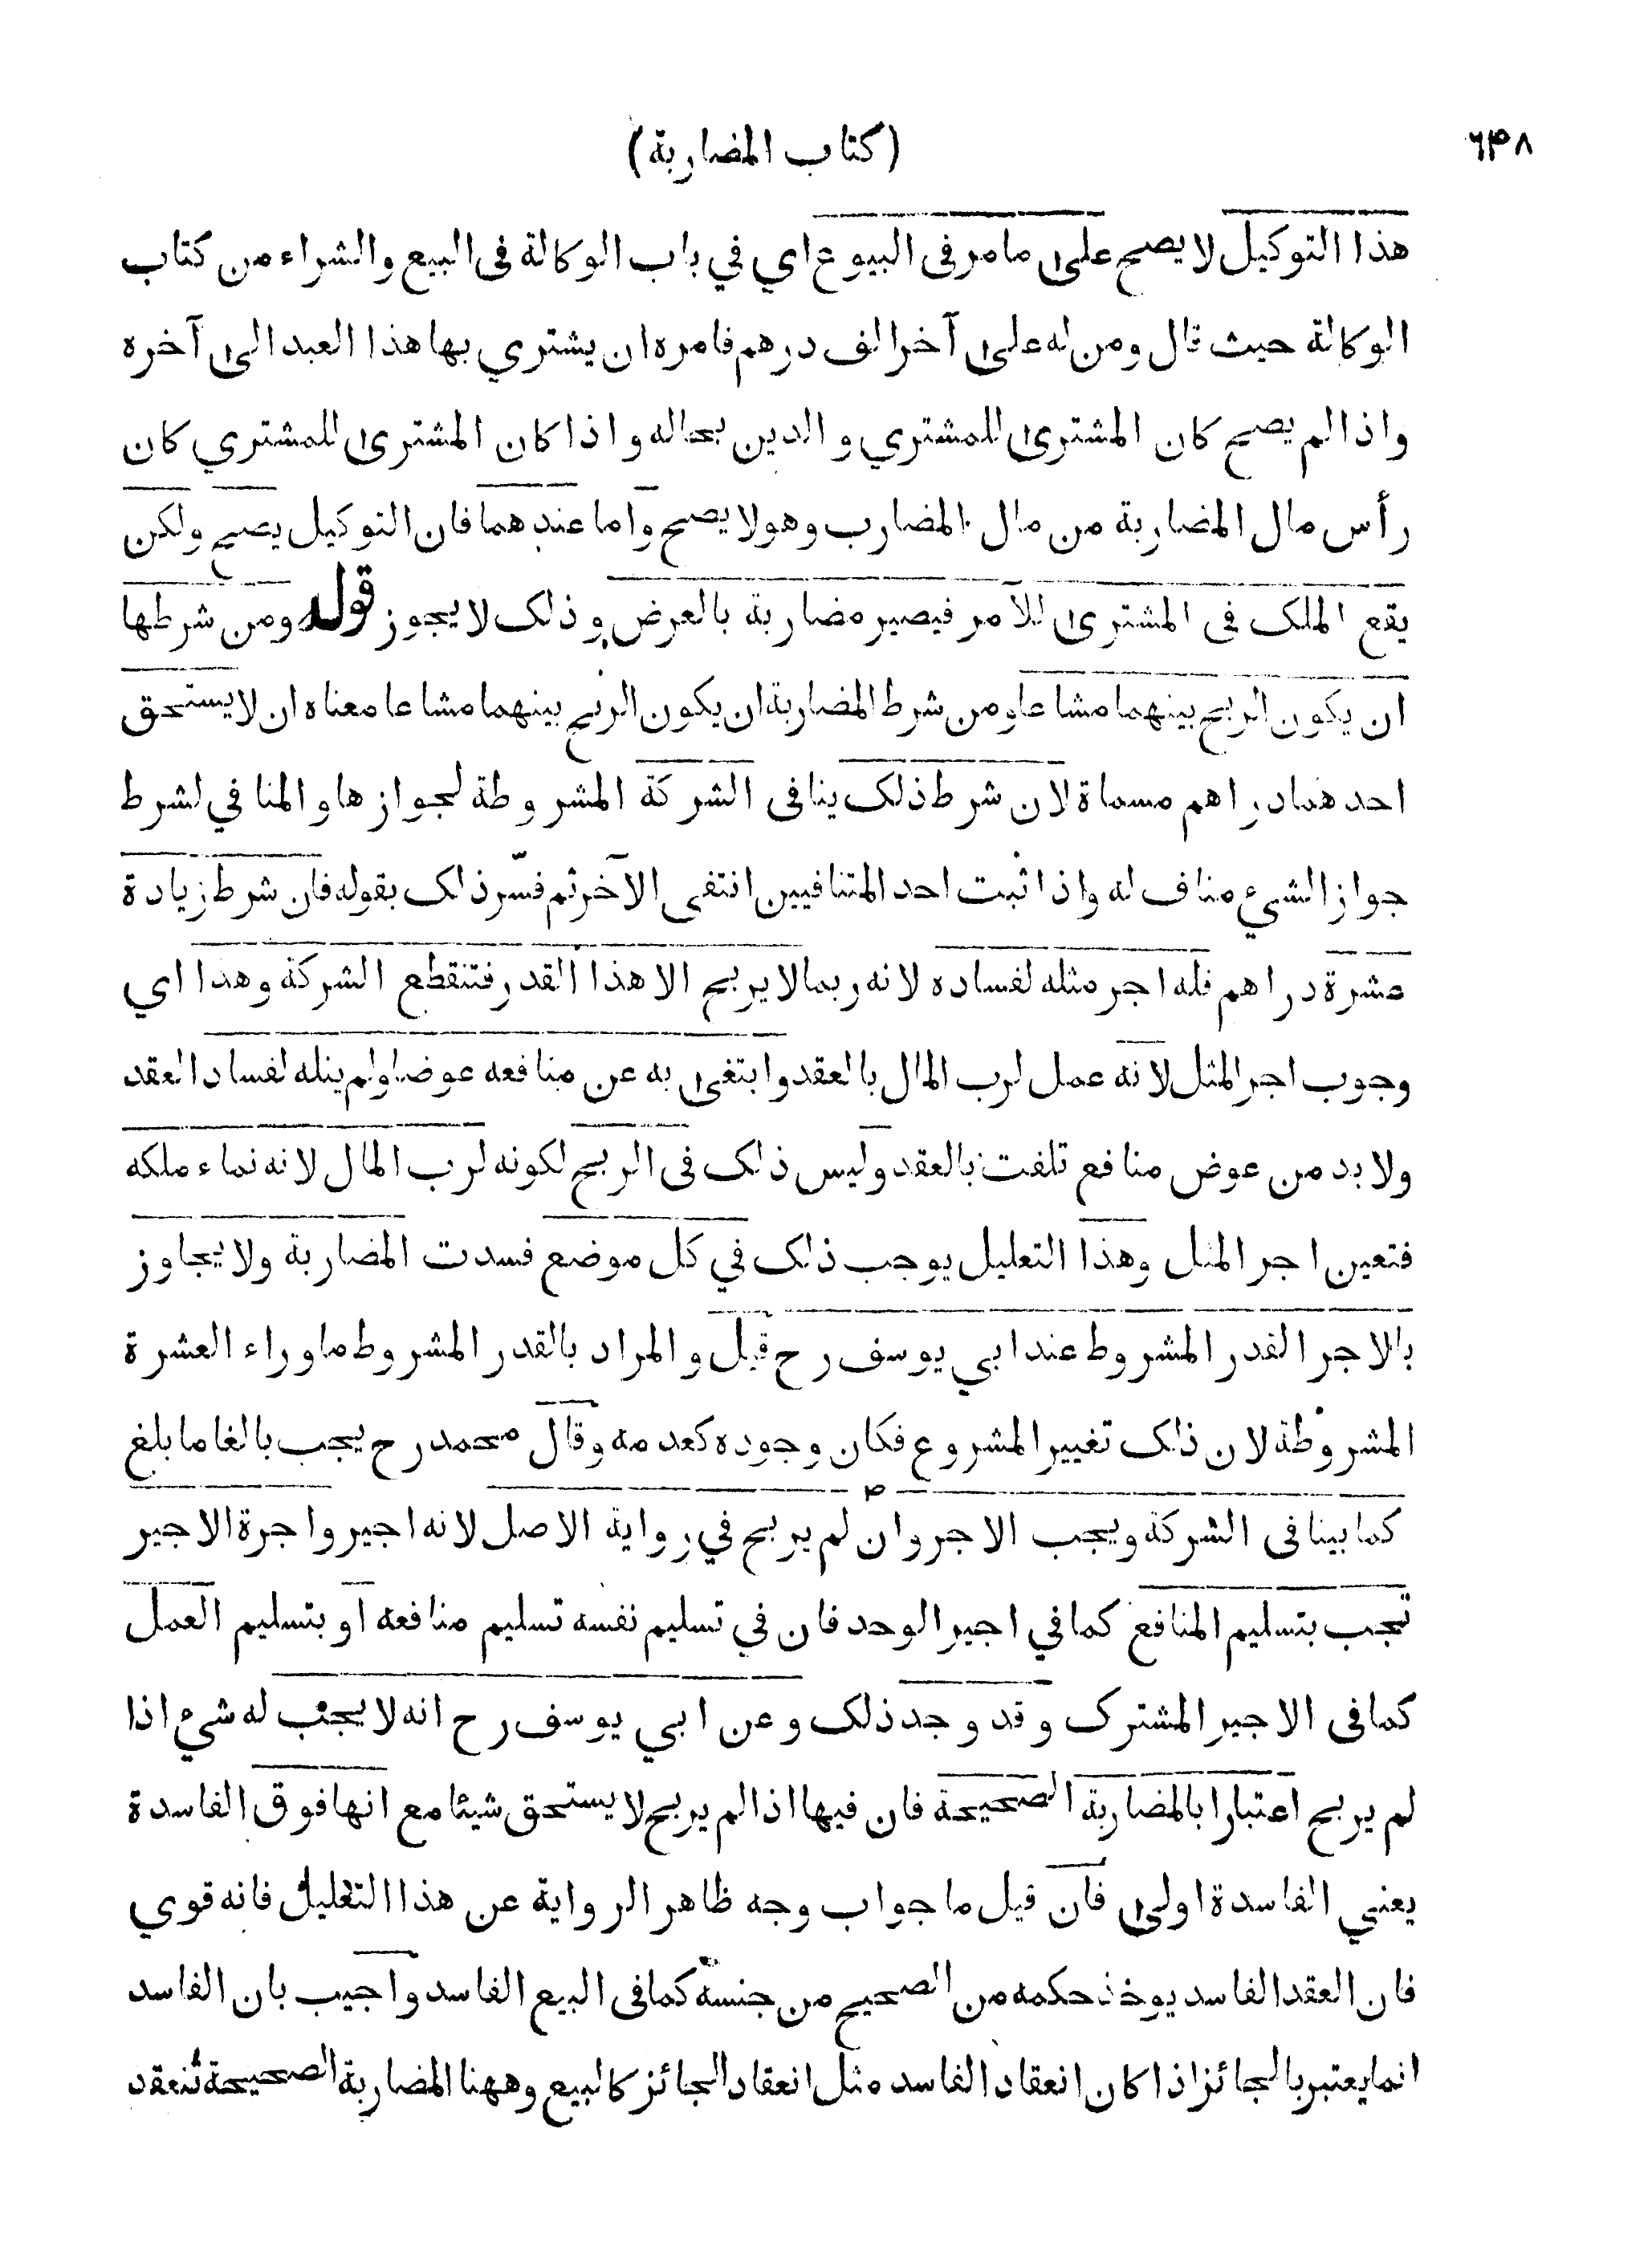 ٦٣٨
(كتاب المضاربة)
هذا التوكيل لا يصح على ما مر فى البيوع اي في باب الوكالة فى البيع والشراء من كتاب
الوكالة حيث قال ومن له على آخر الف درهم فامره ان يشتري بها هذا العبد الى آخره
واذا لم يصح كان المشترى للمشتري والدين بحاله واذا كان المشترى للمشتري كان
رأس مال المضاربة من مال المضارب وهو لا يصح واما عندهما فان التوكيل يصح ولكن
يقع الملك فى المشترى للآمر فيصير مضاربة بالعرض وذلك لا يجوز قوله ومن شرطها
ان يكون الربح بينهما مشاعا ومن شرط المضاربة ان يكون الربح بينهما مشاعا معناه ان لا يستحق
احدهما دراهم مسماة لان شرط ذلك ينافى الشركة المشروطة لجوازها والمنافي لشرط
جواز الشيء مناف له واذا ثبت احد المتنافيين انتفى الآخر ثم فسّر ذلك بقوله فان شرط زيادة
عشرة دراهم فله اجر مثله لفساده لانه ربما لا يربح الا هذا القدر فتنقطع الشركة وهذا اي
وجوب اجر المثل لانه عمل لرب المال بالعقد وابتغى به عن منافعه عوضا ولم ينله لفساد العقد
ولا بد من عوض منافع تلفت بالعقد وليس ذلك فى الربح لكونه لرب المال لانه نماء ملكه
فتعين اجر المثل وهذا التعليل يوجب ذلك في كل موضع فسدت المضاربة ولا يجاوز
بالاجر القدر المشروط عند ابي يوسف رح قيل والمراد بالقدر المشروط ما وراء العشرة
المشروطة لان ذلك تغيير المشروع فكان وجوده كعدمه وقال محمد رح يجب بالغا ما بلغ
كما بينا فى الشركة ويجب الاجر وان لم يربح في رواية الاصل لانه اجير واجرة الاجير
تجب بتسليم المنافع كما في اجير الوحد فان في تسليم نفسه تسليم منافعه او بتسليم العمل
كما فى الاجير المشترك وقد وجد ذلك وعن ابي يوسف رح انه لا يجب له شيء اذا
لم يربح اعتبارا بالمضاربة الصحيحة فان فيها اذا لم يربح لا يستحق شيئا مع انها فوق الفاسدة
يعني الفاسدة اولى فان قيل ما جواب وجه ظاهر الرواية عن هذا التعليل فانه قوي
فان العقد الفاسد يوخذ حكمه من الصحيح من جنسه كما فى البيع الفاسد واجيب بان الفاسد
انما يعتبر بالجائز اذا كان انعقاد الفاسد مثل انعقاد الجائز كالبيع وههنا المضاربة الصحيحة تنعقد